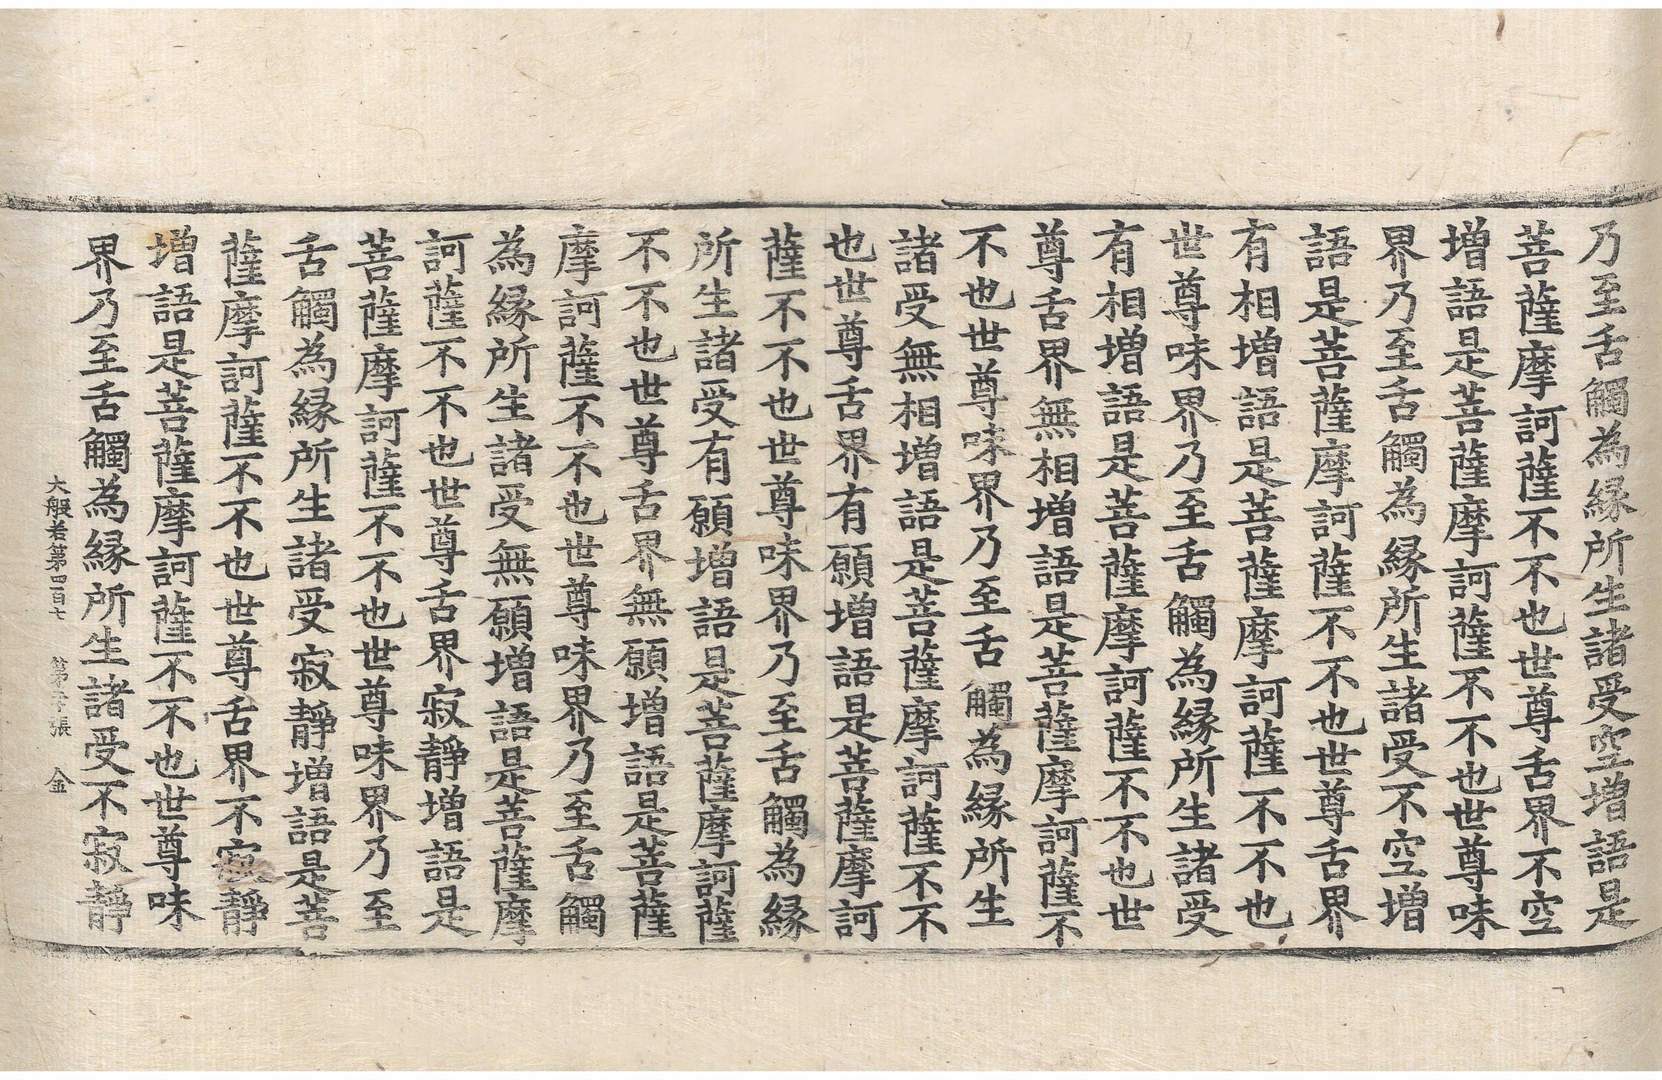 乃至舌觸為緣所生諸受空增語是
菩薩摩訶薩不不也世尊舌界不空
增語是菩薩摩訶薩不不也世尊味
界乃至舌觸為緣所生諸受不空增
語是菩薩摩訶薩不不也世尊舌界
有相增語是菩薩摩訶薩不不也
世尊味界乃至舌觸為緣所生諸受
有相增語是菩薩摩訶薩不不也世
尊舌界無相增語是菩薩摩訶薩不
不也世尊味界乃至舌觸為緣所生
諸受無相增語是菩薩摩訶薩不不
也世尊舌界有願增語是菩薩摩訶
薩不不也世尊味界乃至舌觸為緣
所生諸受有願增語是菩薩摩訶薩
不不也世尊舌界無願增語是菩薩
摩訶薩不不也世尊味界乃至舌觸
為緣所生諸受無願增語是菩薩摩
訶薩不不也世尊舌界寂靜增語是
菩薩摩訶薩不不也世尊味界乃至
舌觸為緣所生諸受寂靜增語是菩
薩摩訶薩不不也世尊舌界不寂靜
增語是菩薩摩訶薩不不也世尊味
界乃至舌觸為緣所生諸受不寂靜
大般若第四百七 第張 金